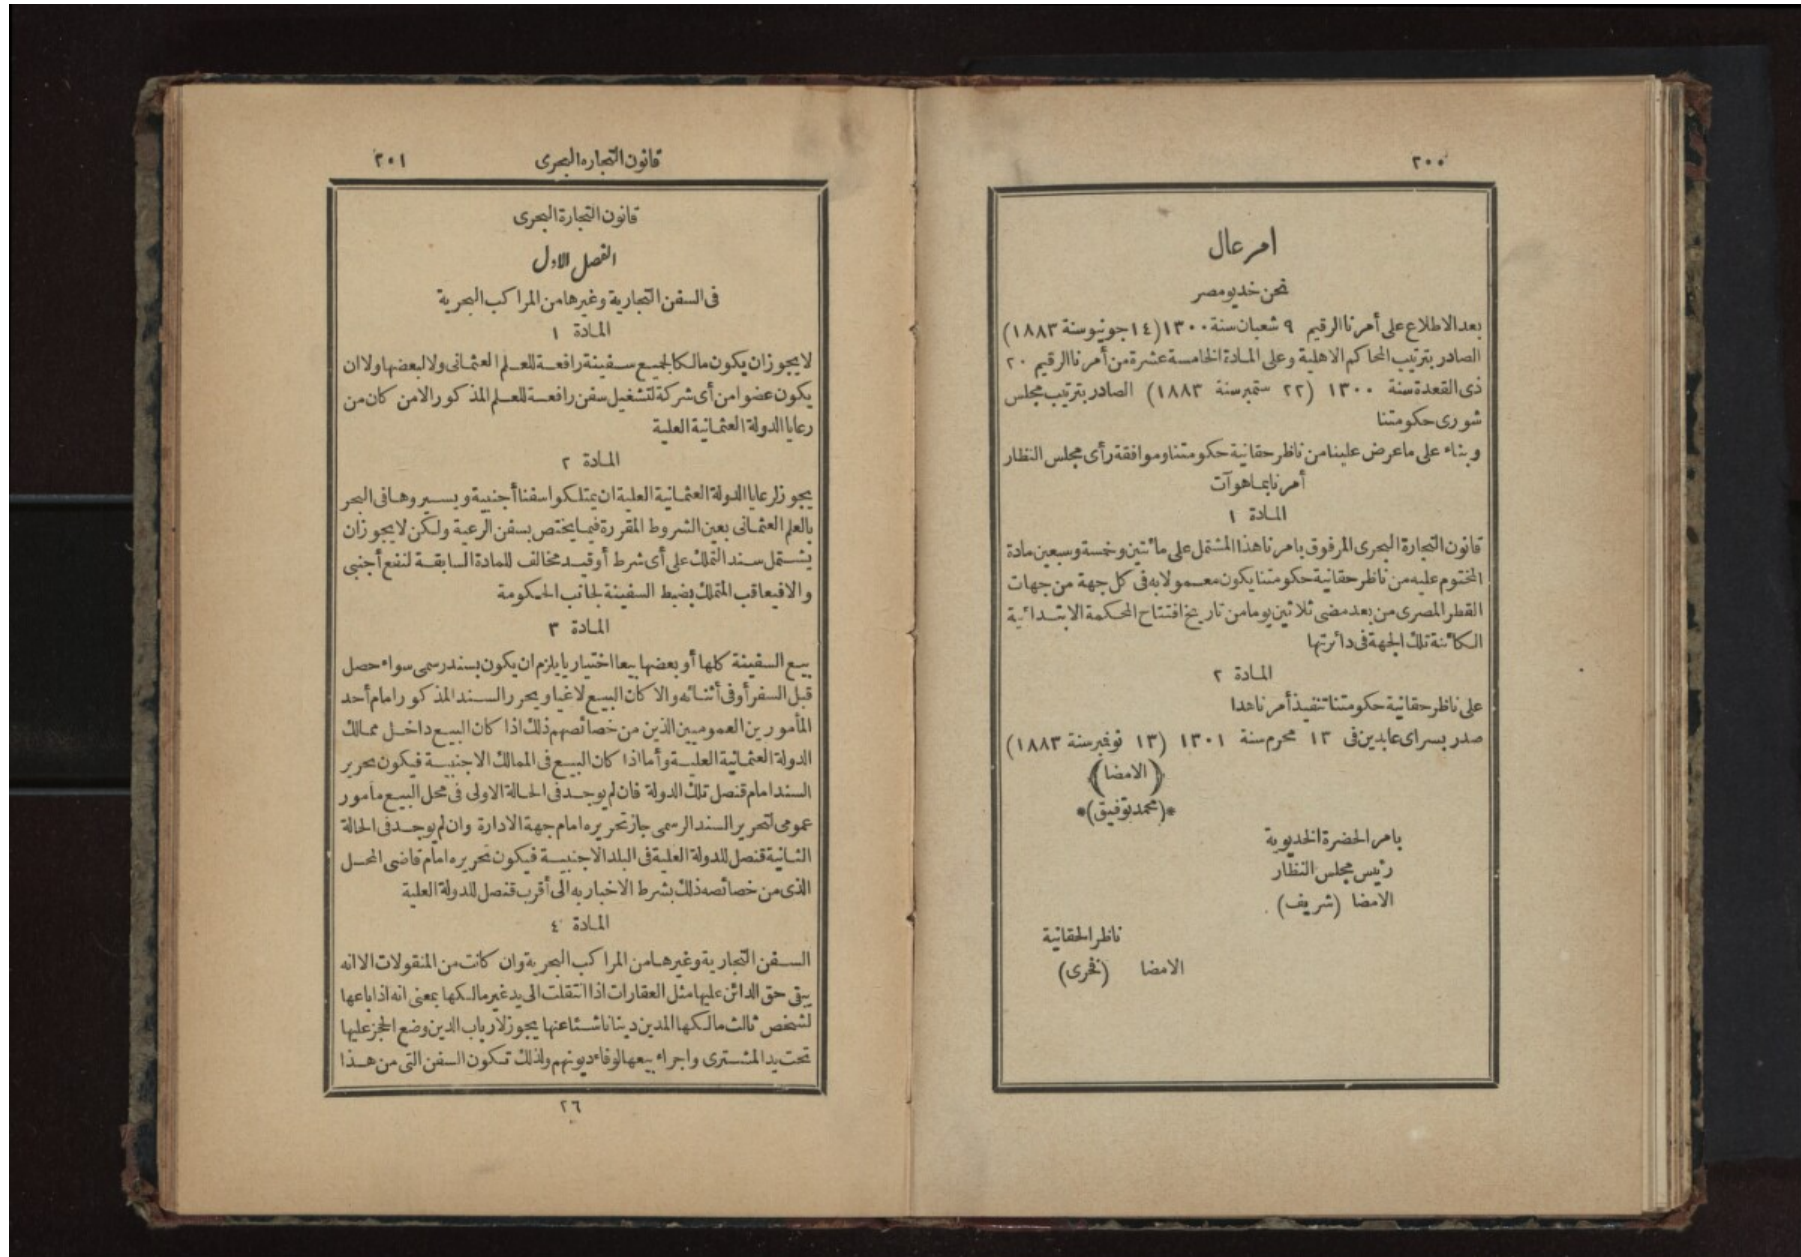 ٢٠٠
امر عال
نحن خديو مصر
بعد الاطلاع على أمرنا الرقيم ٩ شعبان سنة ١٣٠٠ (١٤ جونيو سنة ١٨٨٣)
الصادر بترتيب المحاكم الاهلية وعلى المادة الخامسة عشرة من أمرنا الرقيم ٢٠
ذى القعدة سنة ١٣٠٠ (٢٢ ستمبر سنة ١٨٨٣) الصادر بترتيب مجلس
شورى حكومتنا
وبناء على ما عرض علينا من ناظر حقانية حكومتنا وموافقة رأى مجلس النظار
أمرنا بما هو آت
المادة ١
قانون التجارة البحرى المرفوق بامرنا هذا المشتمل على مائتين وخمسة وسبعين مادة
المختوم عليه من ناظر حقانية حكومتنا يكون معمولا به فى كل جهة من جهات
القطر المصرى من بعد مضى ثلاثين يوما من تاريخ افتتاح المحكمة الابتدائية
الكائنة تلك الجهة فى دائرتها
المادة ٢
على ناظر حقانية حكومتنا تنفيذ أمرنا هدا
صدر بسراى عابدين فى ١٣ محرم سنة ١٣٠١ (١٣ نوفمبر سنة ١٨٨٣)
(الامضا)
*(محمد توفيق)*
بامر الحضرة الخديوية
رئيس مجلس النظار
الامضا (شريف)
ناظر الحقانية
الامضا (فخرى)
قانون التجاره البحرى ٢٠١
قانون التجارة البحرى
الفصل الاول
فى السفن التجارية وغيرها من المراكب البحرية
المادة ١
لا يجوز ان يكون مالكا لجميع سفينة رافعة للعلم العثمانى ولا لبعضها ولا ان
يكون عضوا من أى شركة لتشغيل سفن رافعة للعلم المذكور الا من كان من
رعايا الدولة العثمانية العلية
المادة ٢
يجوز لرعايا الدولة العثمانية العلية ان يمتلكوا سفنا أجنبية ويسيروها فى البحر
بالعلم العثمانى بعين الشروط المقررة فيما يختص بسفن الرعية ولكن لا يجوز ان
يشتمل سند التملك على أى شرط أو قيد مخالف للمادة السابقة لنفع أجنبى
والا فيعاقب المتملك بضبط السفينة لجانب الحكومة
المادة ٣
بيع السفينة كلها أو بعضها بيعا اختياريا يلزم ان يكون بسند رسمى سواء حصل
قبل السفر أو فى أثنائه والا كان البيع لاغيا ويحرر السند المذكور امام أحد
المأمورين العموميين الذين من خصائصهم ذلك اذا كان البيع داخل ممالك
الدولة العثمانية العلية وأما اذا كان البيع فى الممالك الاجنبية فيكون تحرير
السند امام قنصل تلك الدولة فان لم يوجد فى الحالة الاولى فى محل البيع مأمور
عمومى لتحرير السند الرسمى جاز تحريره امام جهة الادارة وان لم يوجد فى الحالة
الثانية قنصل للدولة العلية فى البلد الاجنبية فيكون تحريره امام قاضى المحل
الذى من خصائصه ذلك بشرط الاخبار به الى أقرب قنصل للدولة العلية
المادة ٤
السفن التجارية وغيرها من المراكب البحرية وان كانت من المنقولات الا انه
يبقى حق الدائن عليها مثل العقارات اذا انتقلت الى يد غير مالكها بمعنى انه اذا باعها
لشخص ثالث مالكها المدين دينا ناشئا عنها يجوز لارباب الدين وضع الحجز عليها
تحت يد المشترى واجراء بيعها لوفاء ديونهم ولذلك تكون السفن التى من هذا
٢٦